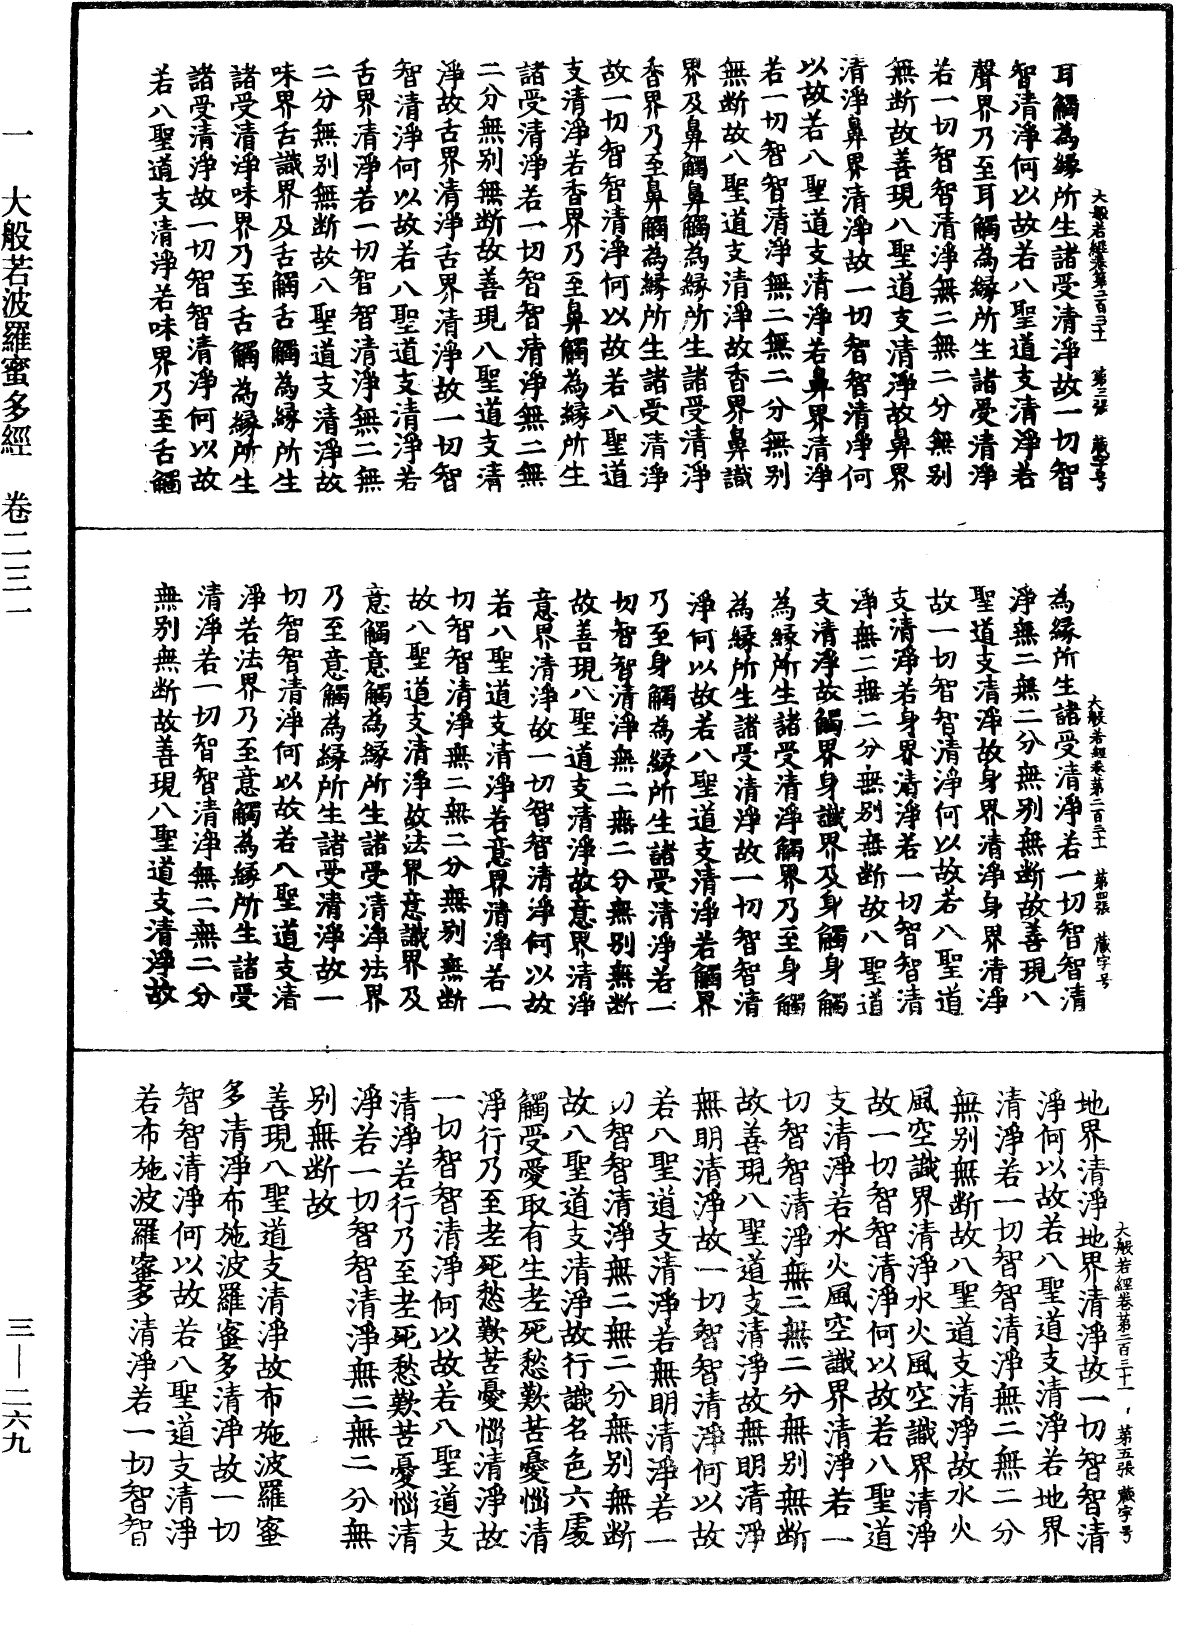 大般若經卷第二百三十一 第三張 藏字号
耳觸為緣所生諸受清淨故一切智
智清淨何以故若八聖道支清淨若
聲界乃至耳觸為緣所生諸受清淨
若一切智智清淨無二無二分無別
無斷故善現八聖道支清淨故鼻界
清淨鼻界清淨故一切智智清淨何
以故若八聖道支清淨若鼻界清淨
若一切智智清淨無二無二分無別
無斷故八聖道支清淨故香界鼻識
界及鼻觸鼻觸為緣所生諸受清淨
香界乃至鼻觸為緣所生諸受清淨
故一切智智清淨何以故若八聖道
支清淨若香界乃至鼻觸為緣所生
諸受清淨若一切智智清淨無二無
二分無別無斷故善現八聖道支清
淨故舌界清淨舌界清淨故一切智
智清淨何以故若八聖道支清淨若
舌界清淨若一切智智清淨無二無
二分無別無斷故八聖道支清淨故
味界舌識界及舌觸舌觸為緣所生
諸受清淨味界乃至舌觸為緣所生
諸受清淨故一切智智清淨何以故
若八聖道支清淨若味界乃至舌觸
大般若經卷第二百三十一 第四張 藏字号
為緣所生諸受清淨若一切智智清
淨無二無二分無別無斷故善現八
聖道支清淨故身界清淨身界清淨
故一切智智清淨何以故若八聖道
支清淨若身界清淨若一切智智清
淨無二無二分無別無斷故八聖道
支清淨故觸界身識界及身觸身觸
為緣所生諸受清淨觸界乃至身觸
為緣所生諸受清淨故一切智智清
淨何以故若八聖道支清淨若觸界
乃至身觸為緣所生諸受清淨若一
切智智清淨無二無二分無別無斷
故善現八聖道支清淨故意界清淨
意界清淨故一切智智清淨何以故
若八聖道支清淨若意界清淨若一
切智智清淨無二無二分無別無斷
故八聖道支清淨故法界意識界及
意觸意觸為緣所生諸受清淨法界
乃至意觸為緣所生諸受清淨故一
切智智清淨何以故若八聖道支清
淨若法界乃至意觸為緣所生諸受
清淨若一切智智清淨無二無二分
無別無斷故善現八聖道支清淨故
大般若經卷第二百三十一 第五張 藏字号
地界清淨地界清淨故一切智智清
淨何以故若八聖道支清淨若地界
清淨若一切智智清淨無二無二分
無別無斷故八聖道支清淨故水火
風空識界清淨水火風空識界清淨
故一切智智清淨何以故若八聖道
支清淨若水火風空識界清淨若一
切智智清淨無二無二分無別無斷
故善現八聖道支清淨故無明清淨
無明清淨故一切智智清淨何以故
若八聖道支清淨若無明清淨若一
切智智清淨無二無二分無別無斷
故八聖道支清淨故行識名色六處
觸受愛取有生老死愁歎苦憂惱清
淨行乃至老死愁歎苦憂惱清淨故
一切智智清淨何以故若八聖道支
清淨若行乃至老死愁歎苦憂惱清
淨若一切智智清淨無二無二分無
別無斷故
善現八聖道支清淨故布施波羅蜜
多清淨布施波羅蜜多清淨故一切
智智清淨何以故若八聖道支清淨
若布施波羅蜜多清淨若一切智智
一 大般若波羅蜜多經 卷二三一 三—二六九